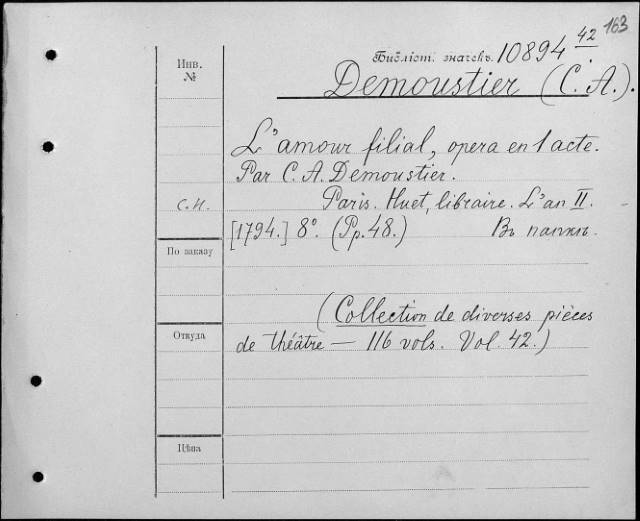 163
Библіот. значекъ. 10894 42.
Инв.
№
Demoustier (C. A.).
L'amour filial, opera en 1 acte.
Par C. A. Demoustier.
С.И.
Paris. Huet, libraire. L'an II.
[1794.] 8º. (Pp. 48.) Въ папкѣ.
По заказу
(Collection de diverses pièces
Откуда
de théâtre — 116 vols. Vol. 42.)
Цѣна